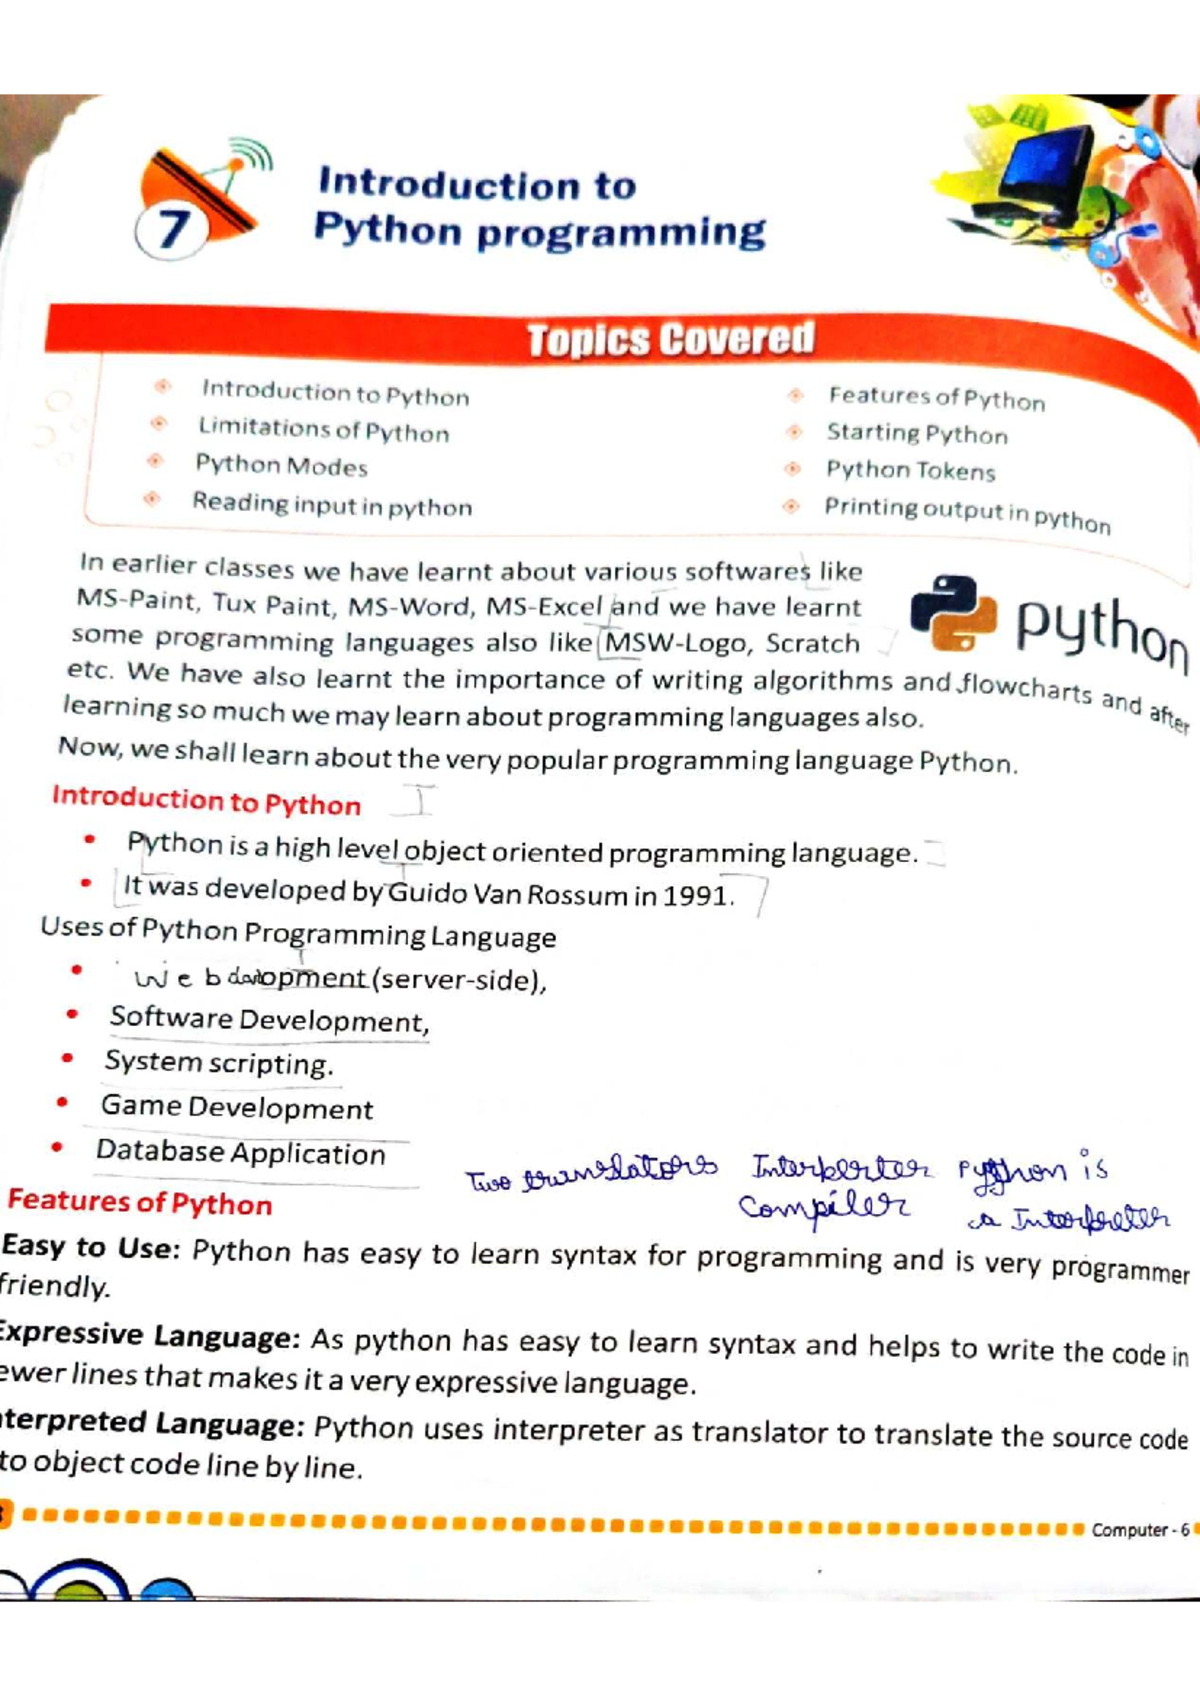 7
Introduction to
Python programming
Topics Covered
Introduction to Python
Limitations of Python
Python Modes
Reading input in python
Features of Python
Starting Python
Python Tokens
Printing output in python
In earlier classes we have learnt about various softwares like
MS-Paint, Tux Paint, MS-Word, MS-Excel and we have learnt
some programming languages also like MSW-Logo, Scratch
etc. We have also learnt the importance of writing algorithms and flowcharts and after
learning so much we may learn about programming languages also.
python
Now, we shall learn about the very popular programming language Python.
Introduction to Python
• Python is a high level object oriented programming language.
• It was developed by Guido Van Rossum in 1991.
Uses of Python Programming Language
• Web opment (server-side),
• Software Development,
• System scripting.
• Game Development
• Database Application
Two translators Interperter Python is
Compiler a Interpreter
Features of Python
Easy to Use: Python has easy to learn syntax for programming and is very programmer
friendly.
Expressive Language: As python has easy to learn syntax and helps to write the code in
ewer lines that makes it a very expressive language.
nterpreted Language: Python uses interpreter as translator to translate the source code
to object code line by line.
Computer - 6